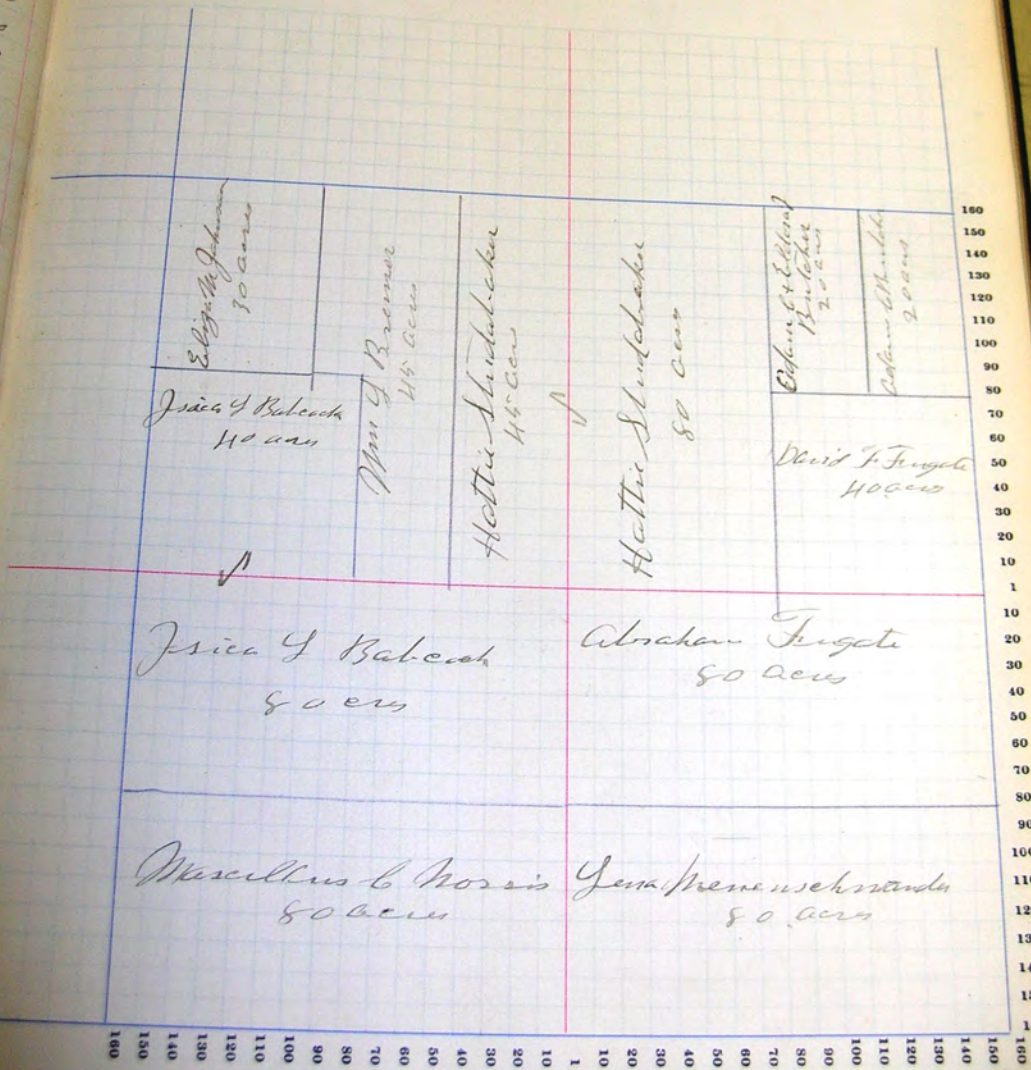 Eliza M Johnson
30 acres
Wm Y Brenner
45 acres
Hattie Studabaker
45 acr
Hattie Studabaker
80 acres
Butcher
20 acres
20 acres
Babcock
40 acres
David F Fugate
40 acres
Babcock
80 acrs
Abraham Fugate
80 acres
Marcellus C Norris
80 acres
Lena
80 acres
160
150
140
130
120
110
100
90
80
70
60
50
40
30
20
10
1
10
20
30
40
50
60
70
80
90
100
110
160 150 140 130 120 110 100 90 80 70 60 50 40 30 20 10 1 10 20 30 40 50 60 70 80 90 100 110 120 130 140 150 160